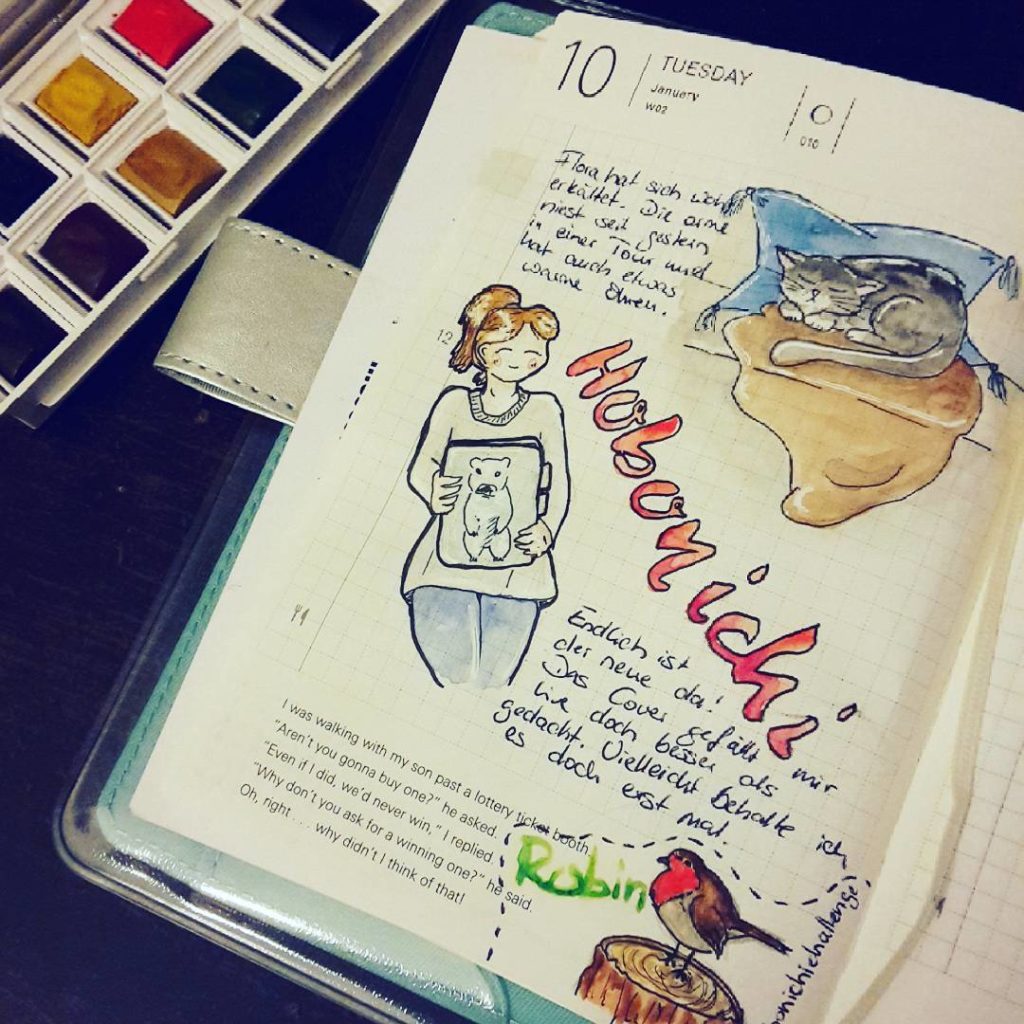 10
TUESDAY
January
W02
010
Flora hat sich wohl
erkältet. Die arme
niest seit gestern
in einer Tour und
hat auch etwas
warme Ohren.
12
Hobonichi
Endlich ist
der neue da!
Das Cover gefällt mir
live doch besser als
gedacht. Vielleicht behalte ich
es doch erst mal.
I was walking with my son past a lottery ticket booth
"Aren't you gonna buy one?" he asked.
"Even if I did, we'd never win," I replied.
"Why don't you ask for a winning one?" he said.
Oh, right . . . why didn't I think of that!
Robin
onichichallenge